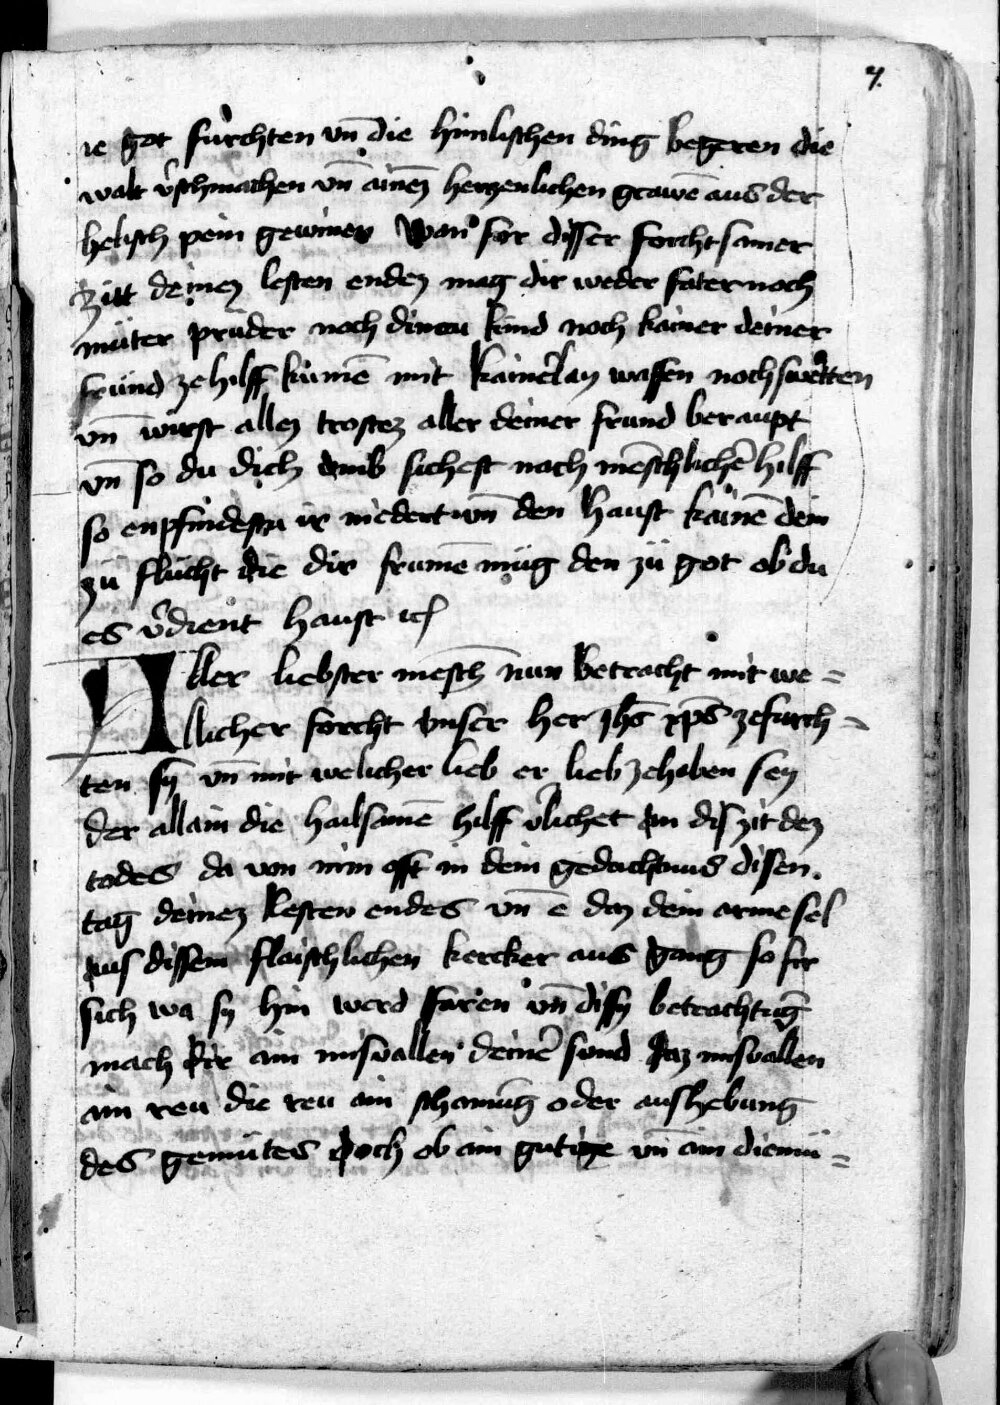 7.
ie got fúrchten vn̄ die himlischen ding begeren die
walt v̄schmachen vn̄ ainē herzenlichen grawē aus der
helisch pein gewinen Wan for disser forchtsamer
zitt deinez lesten endez mag dir weder fater noch
můter průder noch dirnen kind noch kainer deiner
frúnd ze hilff kumē mit kainerlay waffen noch swertten
vn̄ wirst allez trostez aller deiner frund beraupt
vn̄ so du dich umb sichest nach mēschlichē hilff
so enpfindestu ir niedert vn̄ den haust kainē dein
zů flúcht die dir frumē múg den zů got ob du
es v̄dient haust ꝛc
Aller liebster mēsch nun betracht mit we=
licher forcht vnser her ihs̄ xp̄s ze furch=
ten sy vn̄ mit welicher lieb er lieb ze haben sey
der allain die hailsamē hilff v̄lichet in dis zit dez
todes da von nim offt in dein gedachtnus disen
tag deinez lesten endes vn̄ e daz dein arme sel
aus dissem flaischlichen kercker aus gang so fir
sich wa sy hin werd faren vn̄ disy betrachtūg
mach dir ain misvallen deinē sund daz misvallen
ain reu die reu ain schamūg oder aushebung
des gemútes doch ob ain gutige vn̄ ain diemú=